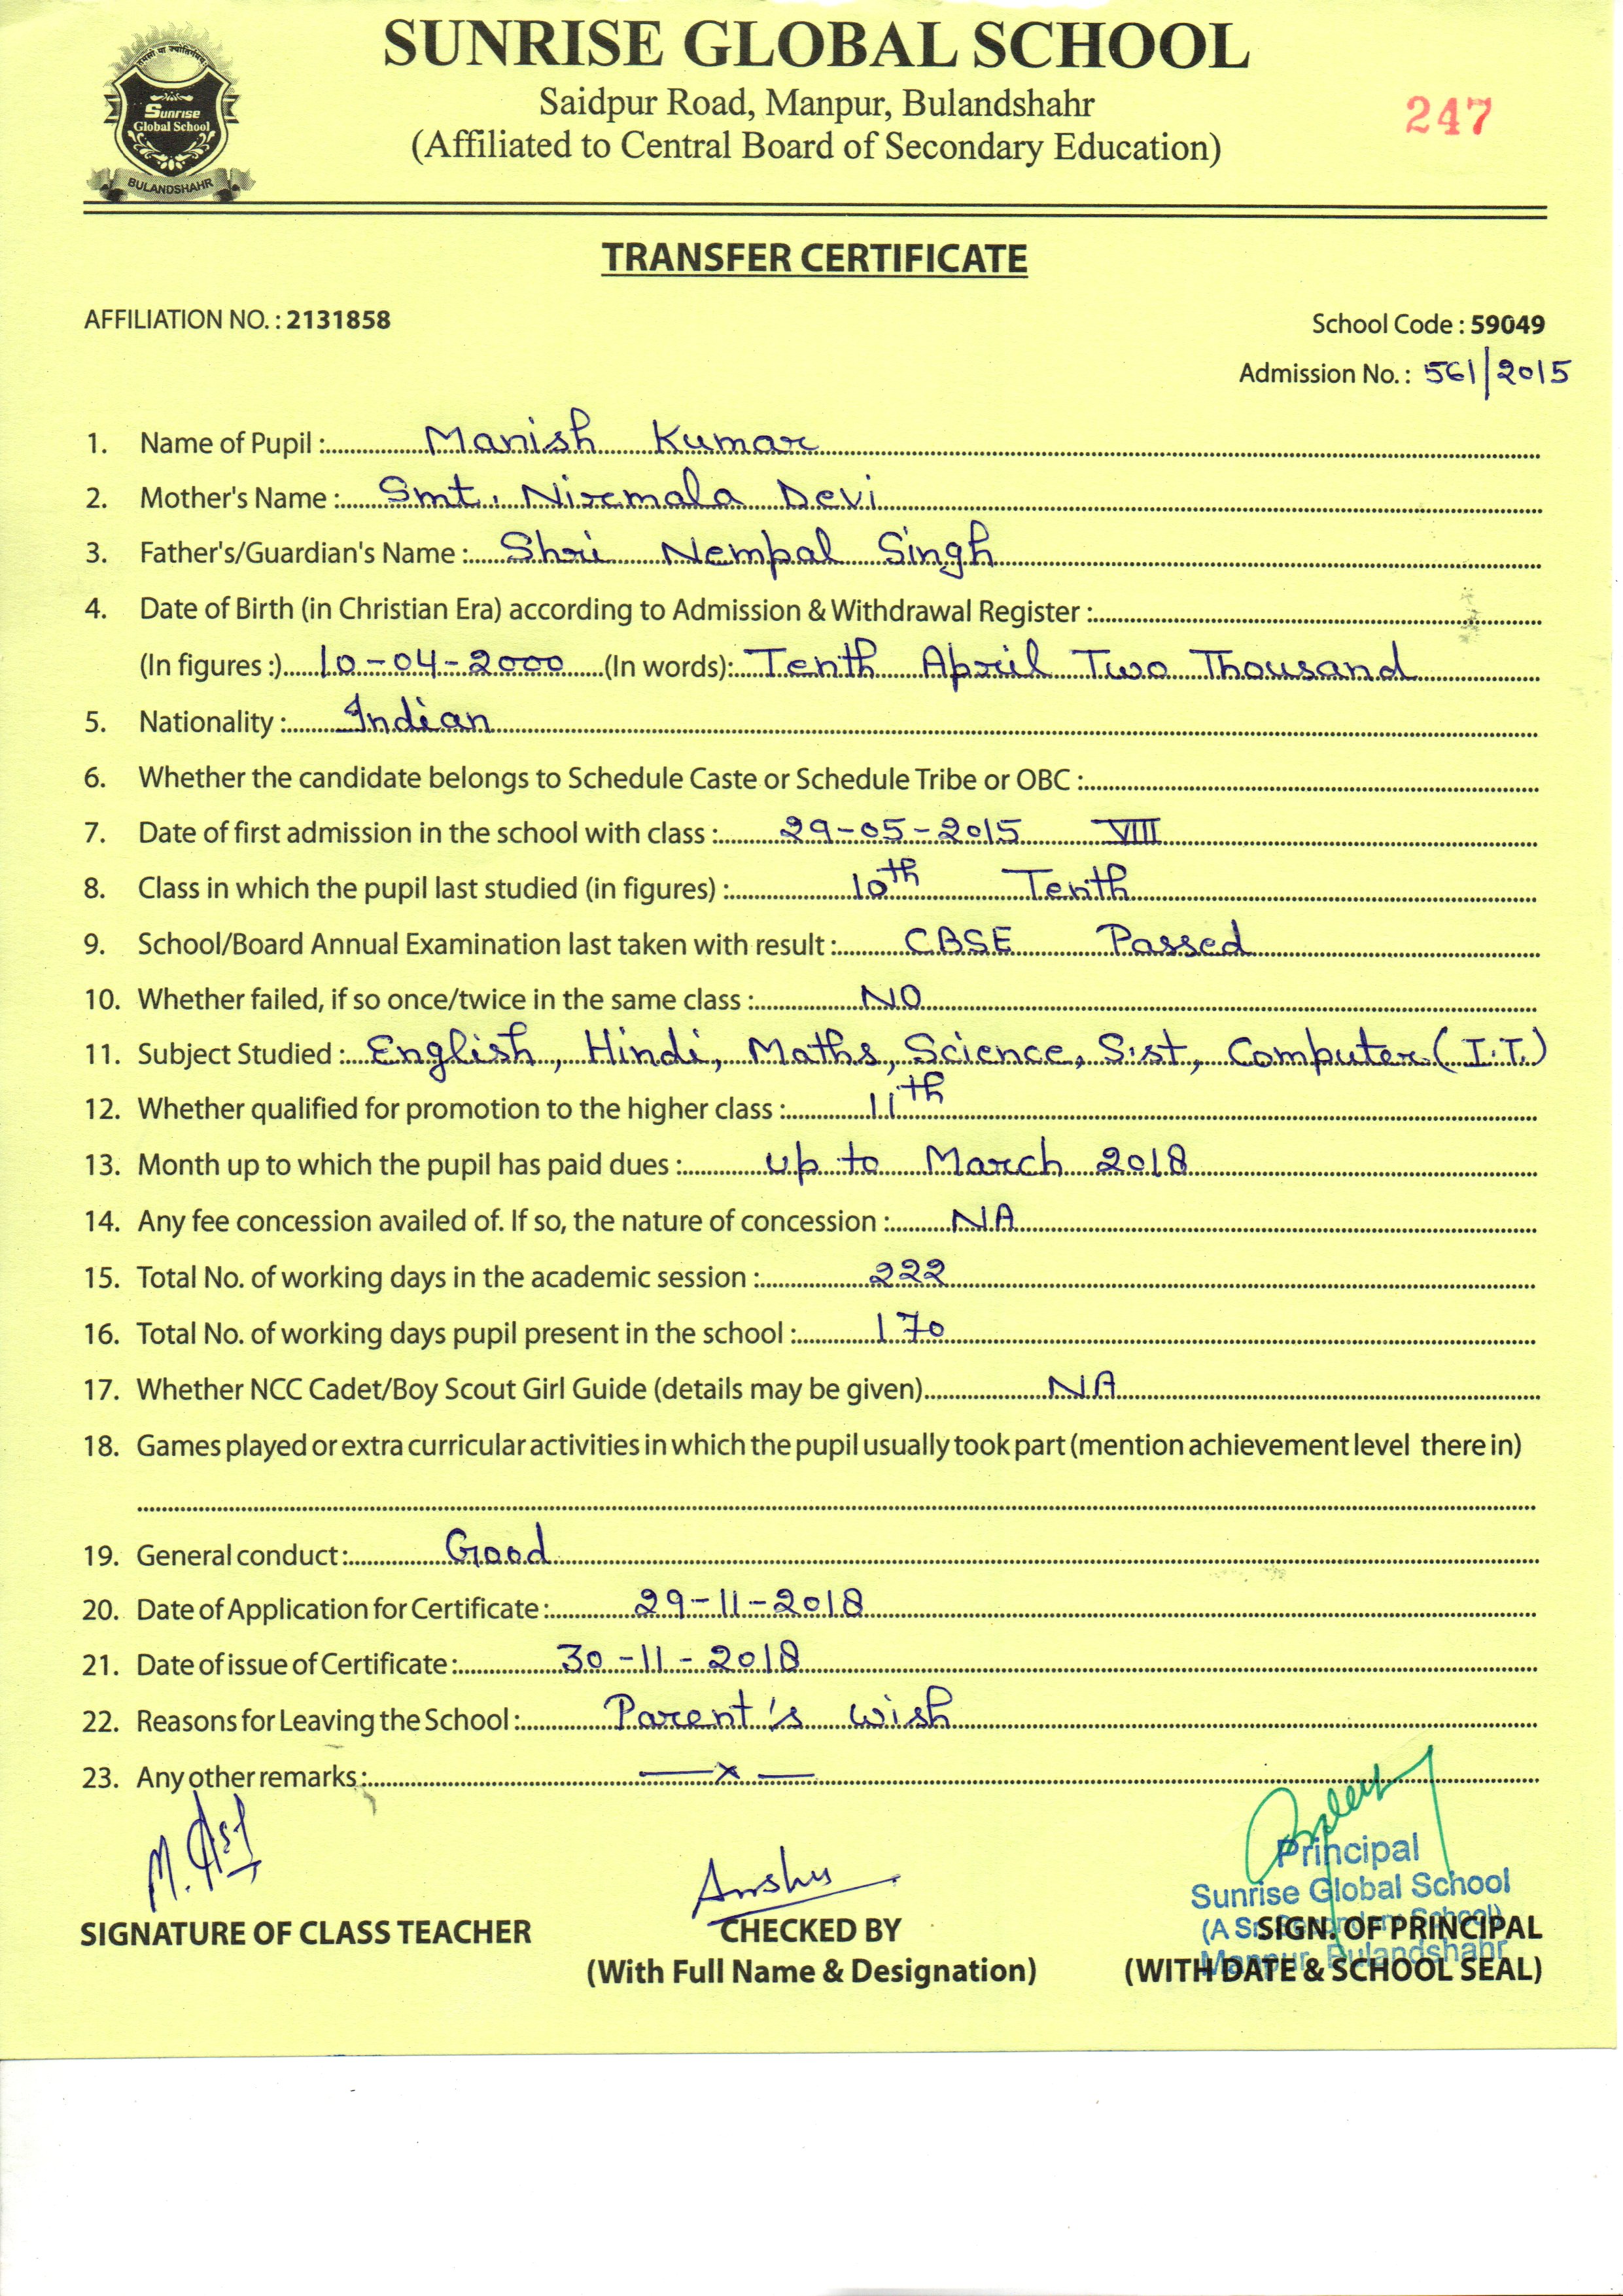 SUNRISE GLOBAL SCHOOL
Saidpur Road, Manpur, Bulandshahr
(Affiliated to Central Board of Secondary Education)
247
Sunrise
Global School
BULANDSHAHR
TRANSFER CERTIFICATE
AFFILIATION NO. : 2131858
School Code : 59049
Admission No. : 561/2015
1. Name of Pupil : Manish Kumar
2. Mother's Name : Smt. Nirmala Devi
3. Father's/Guardian's Name : Shri Nempal Singh
4. Date of Birth (in Christian Era) according to Admission & Withdrawal Register :
(In figures :) 10-04-2000 (In words): Tenth April Two Thousand
5. Nationality : Indian
6. Whether the candidate belongs to Schedule Caste or Schedule Tribe or OBC :
7. Date of first admission in the school with class : 29-05-2015 VIII
8. Class in which the pupil last studied (in figures) : 10th Tenth
9. School/Board Annual Examination last taken with result : CBSE Passed
10. Whether failed, if so once/twice in the same class : NO
11. Subject Studied : English, Hindi, Maths, Science, S.st, Computer (I.T.)
12. Whether qualified for promotion to the higher class : 11th
13. Month up to which the pupil has paid dues : up to March 2018
14. Any fee concession availed of. If so, the nature of concession : NA
15. Total No. of working days in the academic session : 222
16. Total No. of working days pupil present in the school : 170
17. Whether NCC Cadet/Boy Scout Girl Guide (details may be given) NA
18. Games played or extra curricular activities in which the pupil usually took part (mention achievement level there in)
19. General conduct : Good
20. Date of Application for Certificate : 29-11-2018
21. Date of issue of Certificate : 30-11-2018
22. Reasons for Leaving the School : Parent's wish
23. Any other remarks : —x—
Anshu
Principal
Sunrise Global School
(A Sr. Secondary School)
Manpur, Bulandshahr
SIGNATURE OF CLASS TEACHER
CHECKED BY
(With Full Name & Designation)
SIGN. OF PRINCIPAL
(WITH DATE & SCHOOL SEAL)